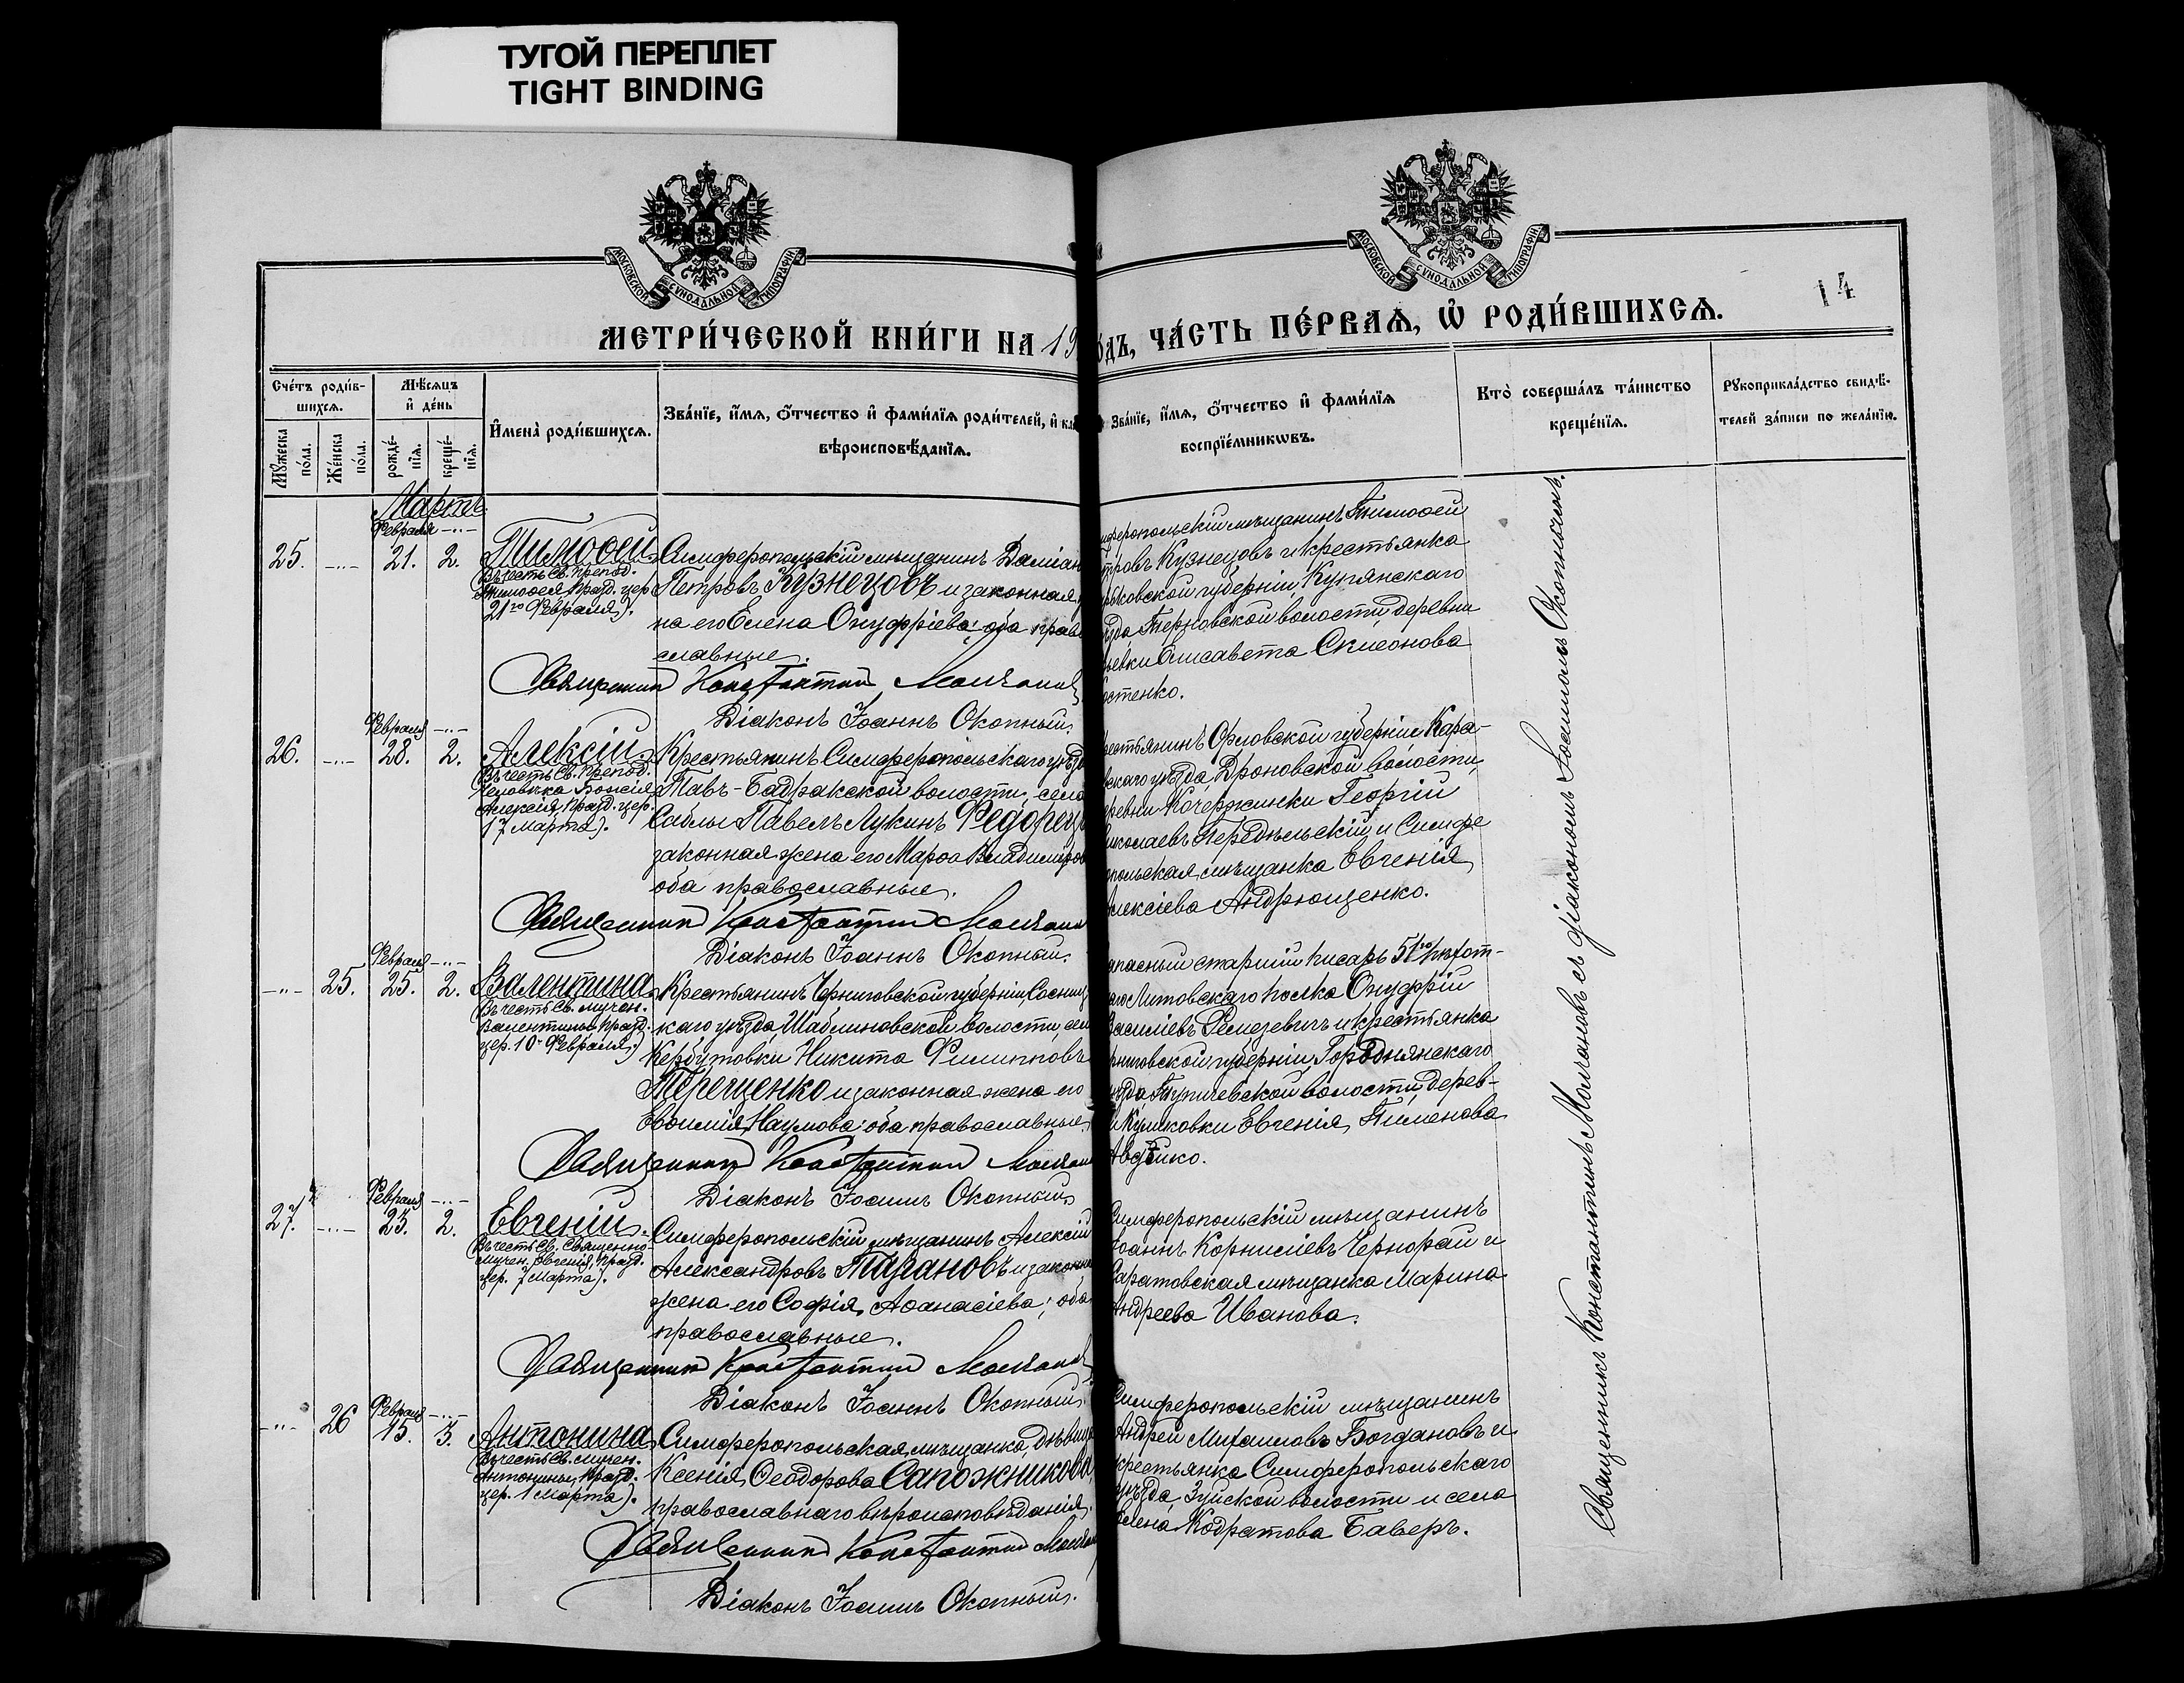 ТУГОЙ ПЕРЕПЛЕТ
TIGHT BINDING
МОСКОВСКОЙ СѴНОДАЛЬНОЙ ТИПОГРАФІИ
МОСКОВСКОЙ СѴНОДАЛЬНОЙ ТИПОГРАФІИ
14
МЕТРИ́ЧЕСКОЙ КНИ́ГИ НА 19
ДЪ, ЧА́СТЬ ПЕ́РВАѦ, Ѡ РОДИ́ВШИХСѦ.
Сче́тъ роди́в-
шихсѧ.
Мꙋжеска по́ла.
Же́нска по́ла.
Мѣ́сѧцъ
и҆ де́нь
рожде́-
нїѧ.
креще́-
нїѧ.
И҆мена̀ роди́вшихсѧ.
Зва́нїе, и҆́мѧ, ѻ҆́тчество и҆ фами́лїѧ роди́телей, и҆
вѣроисповѣ́данїѧ.
Зва́нїе, и҆́мѧ, ѻ҆́тчество и҆ фами́лїѧ
воспрїе́мникѡвъ.
Кто̀ соверша́лъ та́инство
креще́нїѧ.
Рꙋкоприкла́дство свидѣ́-
телей за́писи по жела́нїю.
Мартъ
Февраля —„—
25. —„— 21. 2. Тимоѳей
(Въ честь Св. Препод.
Тимоѳея, празд. цер.
21го Февраля).
Симферопольскій мѣщанинъ Даміан
Петровъ Кузнецовъ и законная
на его Елена Онуфріева; оба право
славные.
Священникъ Константинъ Молчановъ
Діаконъ Іоаннъ Окопный.
мферопольскій мѣщанинъ Тимоѳей
тровъ Кузнецовъ и крестьянка
рьковской губерніи, Купянскаго
зда Терновской волости, деревни
евки Елисавета
остенко.
Февраля —„—
26. —„— 28. 2. Алексій
(Въ честь Св. Препод.
Человѣка Божія
Алексія, празд. цер.
17 Марта).
Крестьянинъ Симферопольскаго уѣзда
Тавъ-Бадракской волости, села
Саблы Павелъ Лукинъ Федорец
законная жена его Марѳа Владимиров
оба православные.
Священникъ Константинъ Молчанов
Діаконъ Іоаннъ Окопный.
рестьянинъ Орловской губерніи Кара-
вскаго уѣзда, Дроновской волости,
еревни Кочержинки Георгій
иколаевъ Передѣльскій и Симфе
опольская мѣщанка Евгенія
лексіева Андрющенко.
Февраля —„—
—„— 25. 25. 2. Валентина
(Въ честь Св. мучен.
Валентины, празд.
цер. 10 Февраля).
Крестьянинъ Черниговской губерніи, Сосниц
каго уѣзда, Шаблиновской волости, сел
Кербутовки Никита Филипповъ
Терещенко и законная жена его
Евѳимія Наумова; оба православные.
Священникъ Константинъ Молчан
Діаконъ Іоаннъ Окопный.
апасный старшій писарь 51го пѣхот-
аго Литовскаго полка Онуфрій
Василіевъ Ремезевичъ и крестьянка
рниговской губерніи, Городнянскаго
ѣзда Тупичевской волости, дерев-
и Куликовки Евгенія Пименова
Авдѣйко.
Февраля —„—
27. —„— 23. 2. Евгеній
(Въ честь Св. Священно-
мучен. Евгенія, празд.
цер. 7 Марта).
Симферопольскій мѣщанинъ Алексій
Александровъ Тагановъ и законна
жена его Софія Аѳанасіева; оба
православные.
Священникъ Константинъ Молчанов
Діаконъ Іоаннъ Окопный.
Симферопольскій мѣщанинъ
Іоаннъ Корниліевъ Чернорай и
Саратовская мѣщанка Марина
Андреева Иванова.
Февраля —„—
—„— 26 15. 3. Антонина
(Въ честь Св. мучен.
Антонины, празд.
цер. 1 Марта).
Симферопольская мѣщанка, дѣвица
Ксенія Ѳеодорова Сапожникова,
православнаго вѣроисповѣданія.
Священникъ Константинъ Молчан
Діаконъ Іоаннъ Окопный.
Симферопольскій мѣщанинъ
Андрей Михаиловъ Богдановъ и
крестьянка Симферопольскаго
уѣзда, Зуйской волости и села
Елена Кодратова Баверъ.
Священникъ Константинъ Молчановъ съ діакономъ Іоанномъ Окопнымъ.